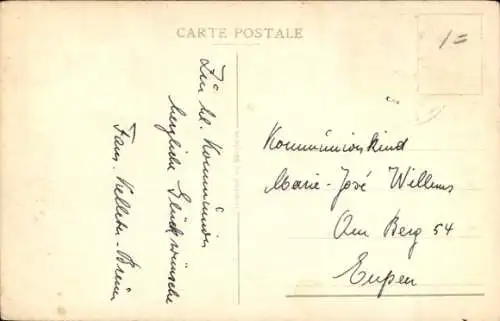 CARTE POSTALE
1=
Zur hl. Kommunion
herzliche Glückwünsche
Fam. Kelleter-Breuer
Kommunionkind
Marie-José Willems
Am Berg 54
Eupen